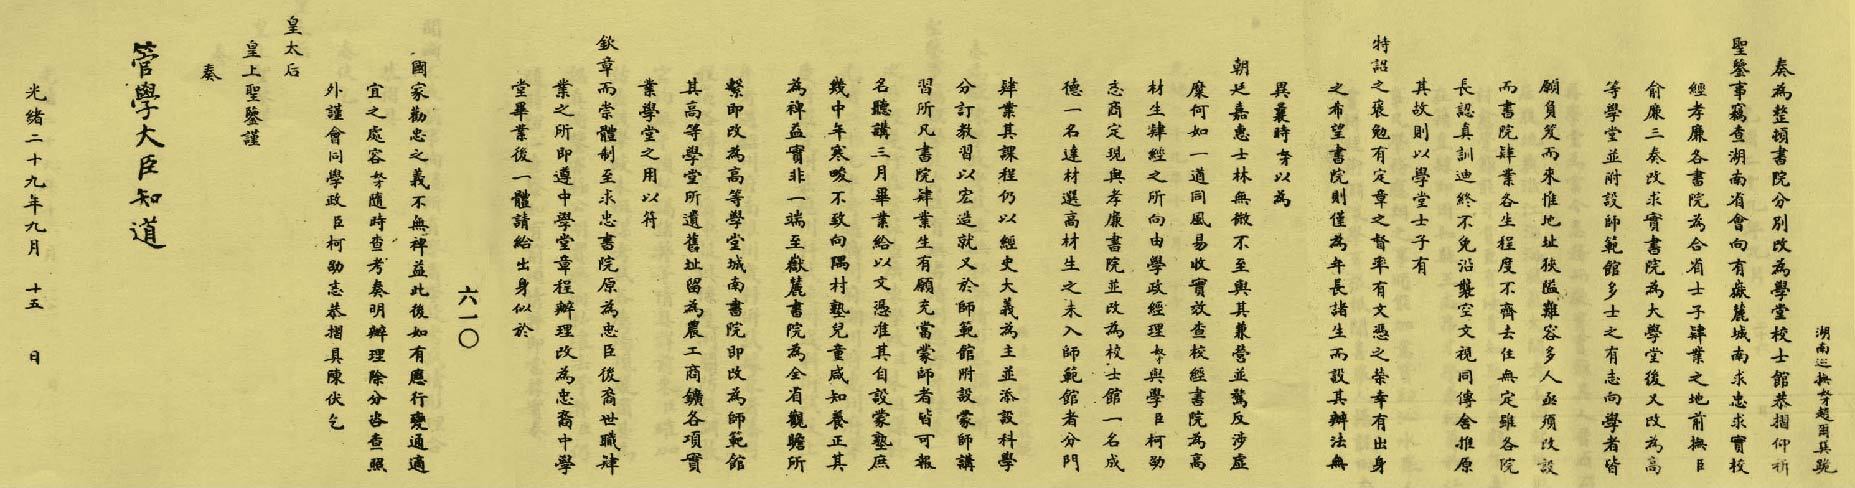 湖南巡撫奴才趙爾巽跪
奏為整頓書院分別改為學堂校士館恭摺仰祈
聖鑒事竊查湖南省會向有嶽麓城南求忠求實校
經孝廉各書院為合省士子肄業之地前撫臣
俞廉三奏改求實書院為大學堂後又改為高
等學堂並附設師範館多士之有志向學者皆
願負笈而來惟地址狹隘難容多人亟須改設
而書院肄業各生程度不齊去住無定雖各院
長認真訓迪終不免沿襲空文視同傳舍推原
其故則以學堂士子有
特詔之褒勉有定章之督率有文憑之榮幸有出身
之希望書院則僅為年長諸生而設其辦法無
異曩時奴才以為
朝廷嘉惠士林無微不至與其兼營並騖反涉虛
糜何如一道同風易收實效查校經書院為高
材生肄經之所向由學政經理奴才與學臣柯劭
志商定現與孝廉書院並改為校士館一名成
德一名達材選高材生之未入師範館者分門
肄業其課程仍以經史大義為主並添設科學
分訂教習以宏造就又於師範館附設蒙師講
習所凡書院肄業生有願充當蒙師者皆可報
名聽講三月畢業給以文憑准其自設蒙塾庶
幾中年寒畯不致向隅村塾兒童咸知養正其
為裨益實非一端至嶽麓書院為全省觀瞻所
繫即改為高等學堂城南書院即改為師範館
其高等學堂所遺舊址留為農工商鑛各項實
業學堂之用以符
欽章而崇體制至求忠書院原為忠臣後裔世職肄
業之所即遵中學堂章程辦理改為忠裔中學
堂畢業後一體請給出身似於
六一〇
國家勸忠之義不無裨益此後如有應行變通適
宜之處容奴才隨時查考奏明辦理除分咨查照
外謹會同學政臣柯劭志恭摺具陳伏乞
皇太后
皇上聖鑒謹
奏
管學大臣知道
光緒二十九年九月 十五 日